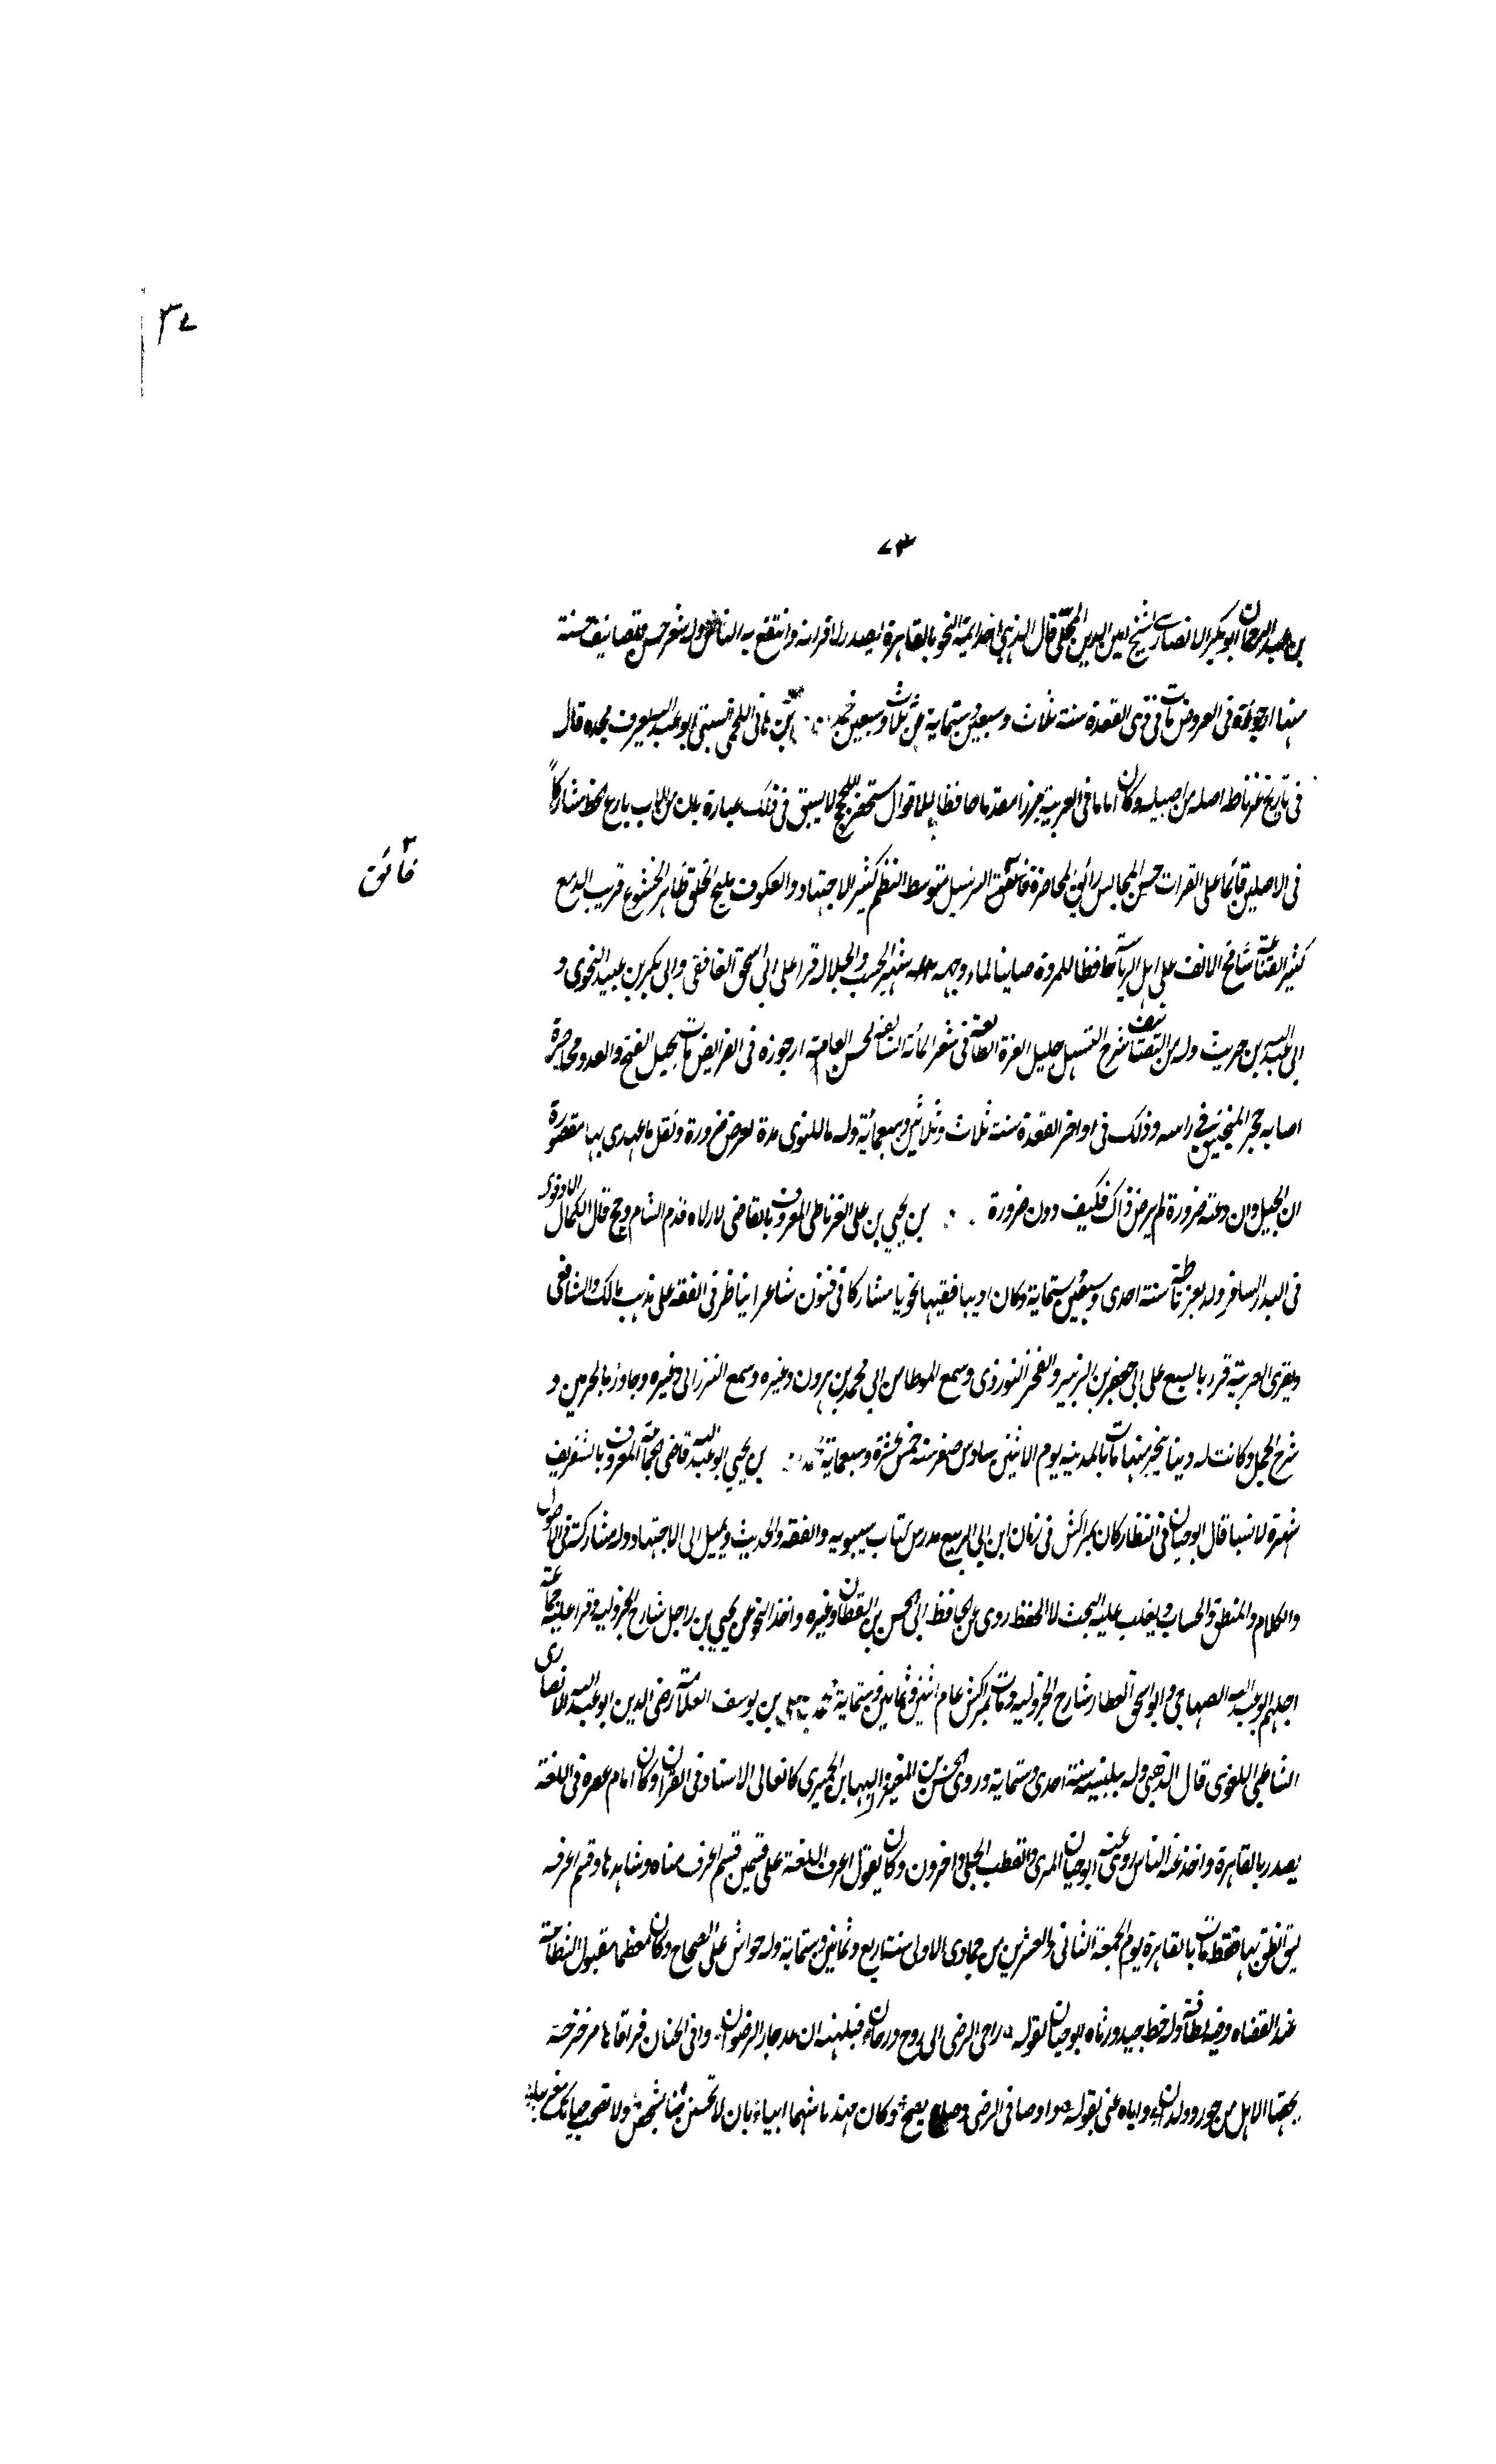 ٣٧
٧٣
بن عبد الرحمان ابوبكر الانصاري الشيخ امين الدين المحلي قال الذهبي احد ائمة النحو بالقاهرة تصدر لاقرائه وانتفع به الناس وله شعر حسن وتصانيف حسنة
منها ارجوزة في العروض مات في ذى القعدة سنة ثلاث وسبعين وستماية عن ثلاث وسبعين محمد بن هانى اللخمي السبتي ابو عبد الله يعرف بجده قال
فى تاريخ غرناطه اصله من اصبيليه وكان اماما فى العربية مبرزا مقدما حافظا للاقوال مستحضر للحجج لا يسبق فى ذلك عبارة بارع الخط مشاركاً
فى الاصلين قائما على القرات حسن المجالس رائق المحاضرة فائق الترسيل متوسط النظم كثير الاجتهاد والعكوف مليح الخلق ظاهر الخشوع قريب الدمع
فائق
كثير القناعة شامخ الانف على اهل الرياسة حافظا للمروة صاينا لماء وجهه شهير الحسب والجلاله قرا على ابى اسحق الغافقى وابى بكر بن عبيد النحوى و
ابى عبد الله بن حريث وله من التصانيف شرح التسهيل جليل الغرة الطالعة فى شعر المائة السابعة لحن العامة ارجوزه فى الفرايض مات بجبل الفتح والعدو محاصرة
اصابه حجر المنجنيق في راسه وذلك فى اواخر القعدة سنة ثلاث وثلاثين وسبعمائة وله ما للنوى مدة لغرض ضرورة ونقل ما عهدى بها مقصورة
ان الجبيل وان دعته ضرورة لم يرض ذاك فكيف دون ضرورة بن يحيي بن على الغرناطى المعروف بالقاضى لارلاه قدم الشام وحج قال الكمال الادفوى
فى البدر السافر ولد بغرناطة سنة احدى وسبعين وستماية وكان اديبا فقيها نحويا مشاركا فى فنون شاعرا يناظر فى الفقه على مذهب مالك والشافعى
ويقرى العربية قرء بالسبع على ابى جعفر بن الزبير والفخر التوزرى وسمع الموطا من ابى محمد بن هرون وغيره وسمع الغزالى وغيره وجاور بالحرمين و
شرح الجمل وكانت له دينا يخبر منها مات بالمدينه يوم الاثنين سادس صفر سنة خمس عشرة وسبعماية محمد بن يحيي ابو عبد الله قاضى الجماعة المعروف بالشريف
شهرة لا نسبا قال ابو حيان فى النظار كان بمراكش فى زمان ابن ابى الربيع مدرس كتاب سيبويه والفقه والحديث ويميل الى الاجتهاد وله مشاركة فى الاصول
والكلام والمنطق والحساب ويغلب عليه البحث لا الحفظ روى عن الحافظ ابى الحسن بن القطان وغيره واخذ النحو عن يحيي بن راجل شارح الجزوليه وقرا عليه جماعة
اجلهم ابو عبد الله الصنهاجى وابو اسحق العطار شارح الجزوليه ومات بمراكش عام اثنين وثمانين وستماية محمد بن على بن يوسف العلامة رضى الدين ابو عبد الله الانصارى
الشاطبى اللغوى قال الذهبى ولد ببلنسيه سنة احدى وستماية وروى عن ابن المقير والبها ابن الجميزى كان عالى الاسناد فى القران وكان امام عصره فى اللغة
تصدر بالقاهرة واخذ عنه الناس روى عنه ابو حيان المزى والقطب الحلبى واخرون وكان يقول اعرف اللغة على قسمين قسم اعرف معناه وشاهدها وقسم اعرف
كيف انطق بها فقط مات بالقاهرة يوم الجمعة الثانى والعشرين من جمادى الاولى سنة اربع وثمانين وستماية وله حواش على الصحاح وكان معظما مقبول الشفاعة
عند القضاه وفيه لطافة وله خط جيد ورثاه ابو حيان بقوله راح الرضى الى روح وريحان فليهنه ان غدا جار الرضوان وافى الجنان فوافاها مزخرفة
يحفها الاهل من حور وولدان واياه عنى بقوله واوصانى الرضى وصاة نصح وكان مهذبا شهما ابيا بان لا تحسنن ظنا بشخص ولا تصحب حياتك مغربيا